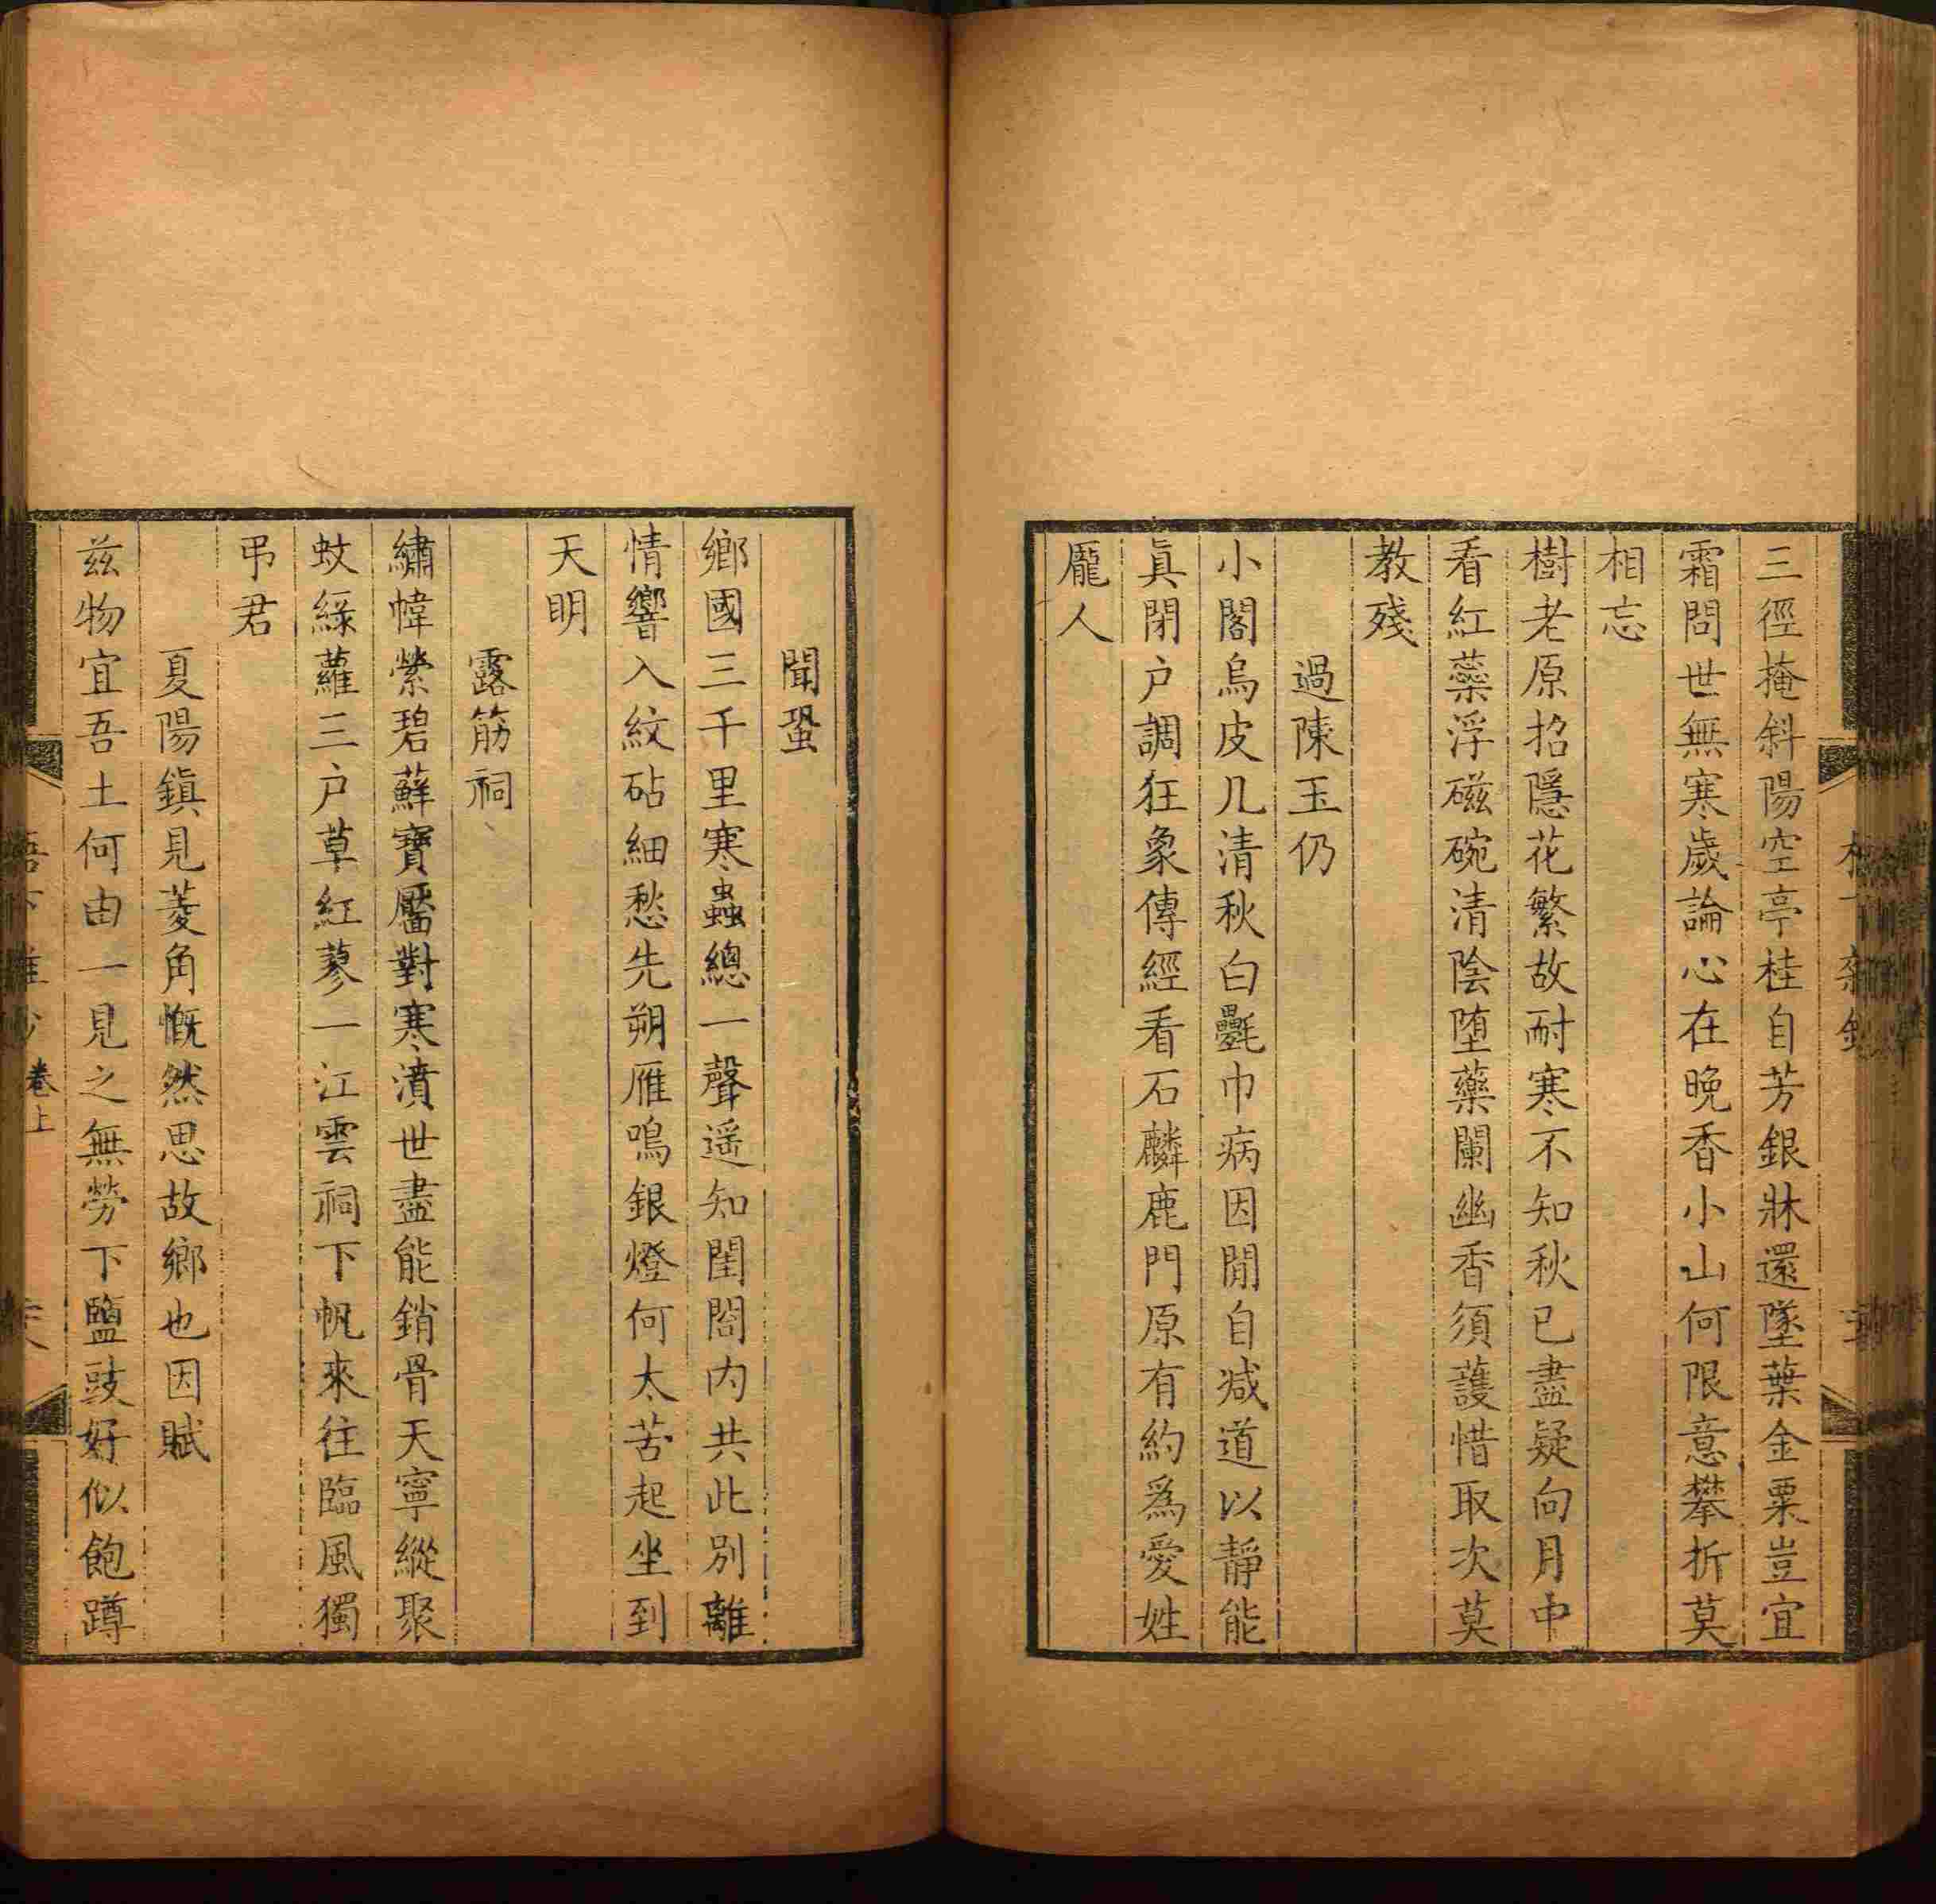 三徑掩斜陽空亭桂自芳銀牀還墜葉金粟豈宜
霜問世無寒歲論心在晚香小山何限意攀折莫
相忘
樹老原招隱花繁故耐寒不知秋已盡疑向月中
看紅藥浮磁碗清陰堕藥闌幽香須護惜取次莫
教殘
過陳玉仍
小閣烏皮几清秋白氎巾病因閒自减道以靜能
真閉户調狂象傳經看石麟鹿門原有約爲愛姓
龐人
聞蛩
鄉國三千里寒蟲總一聲遥知閨閤内共此别離
情響入紋砧細愁先朔雁鳴銀燈何太苦起坐到
天明
露筋祠
繡幃縈碧蘚寶靨對寒濆世盡能銷骨天寧縱聚
蚊綠蘿三户草紅蓼一江雲祠下帆來往臨風獨
弔君
夏陽鎮見菱角慨然思故鄉也因賦
兹物宜吾土何由一見之無勞下鹽豉好似飽蹲
卷上